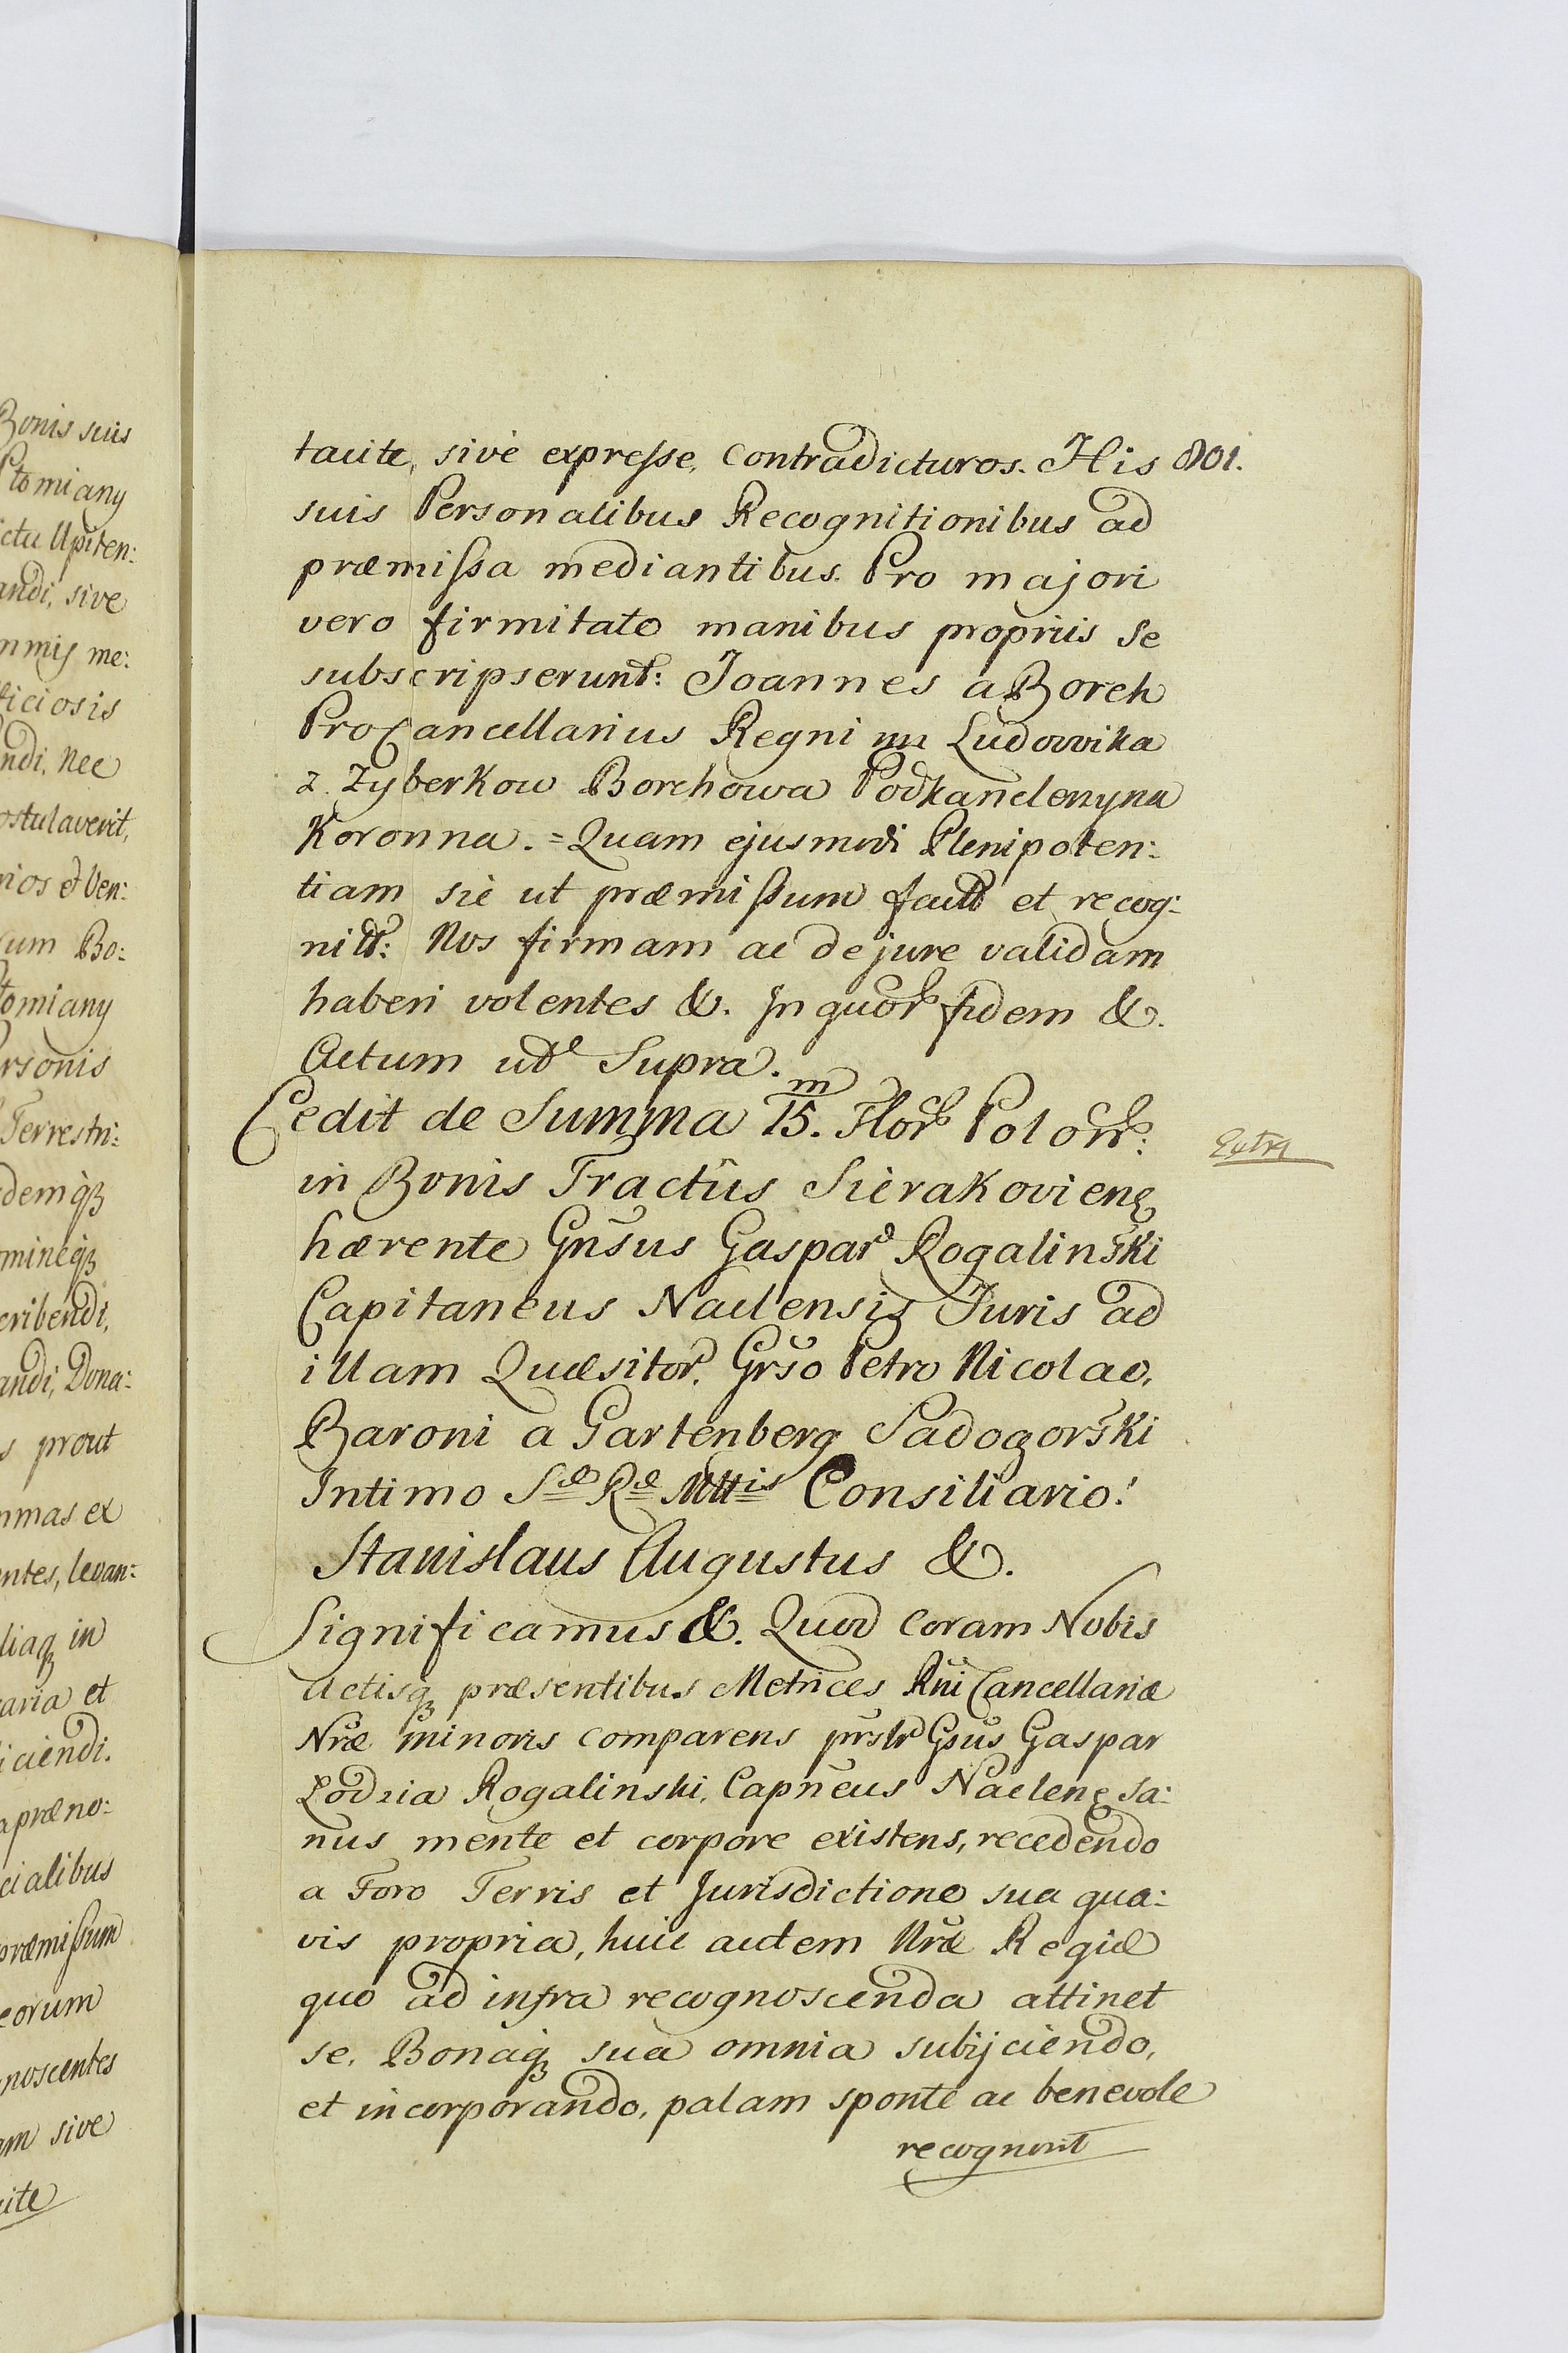 Bonis suis
Ptomiany
ctu Upiten:
andi, sive
mmis me:
ficiosis
ndi. Nec
ostulaverit,
rios et Ven:
cum Bo:
tomiany
ersonis
Terrestri:
demqꝫ
mineqꝫ
cribendi,
andi, Dona:
s prout
mmas ex
entes, levan:
liaqꝫ in
aria et
iciendi.
apræno:
cialibus
præmissum
eorum
noscentes
am sive
cite
tacite, sive expresse, Contradicturos. His 801.
suis Personalibus Recognitionibus ad
præmissa mediantibus. Pro majori
vero firmitate manibus propriis se
subscripserunt: Joannes a Borch
ProCancellarius Regni mp Ludowika
z. Zyberkow Borchowa Podkanclerzyna
Koronna. = Quam ejusmodi Plenipoten:
tiam sic ut præmissum factt et recog:
nitt: Nos firmam ac de jure validam
haberi volentes &. In quor fidem &.
Actum ut Supra.
Cedit de Summa 15.m Flor Polon:
Extra
in Bonis Tractûs Sierakovien
hærente Gnsus Gaspar Rogalinski
Capitaneus Naclensis Juris ad
illam Quæsitor, Gnso Petro Nicolao,
Baroni a Gartenberg Sadogorski
Intimo Sæ Ræ Mttis Consiliario.
Stanislaus Augustus &.
Significamus &. Quod coram Nobis
Actisqꝫ præsentibus Metrices Rni Cancellariæ
Nræ minoris comparens prsltr Gsus Gaspar
Łodzia Rogalinski, Capneus Naclen sa:
nus mente et corpore existens, recedendo
a Foro Terris et Jurisdictione sua qua:
vis propria, huic autem Nræ Regiæ
quo ad infra recognoscenda attinet
se, Bonaqꝫ sua omnia subijciendo,
et incorporando, palam sponte ac benevole
recognovit